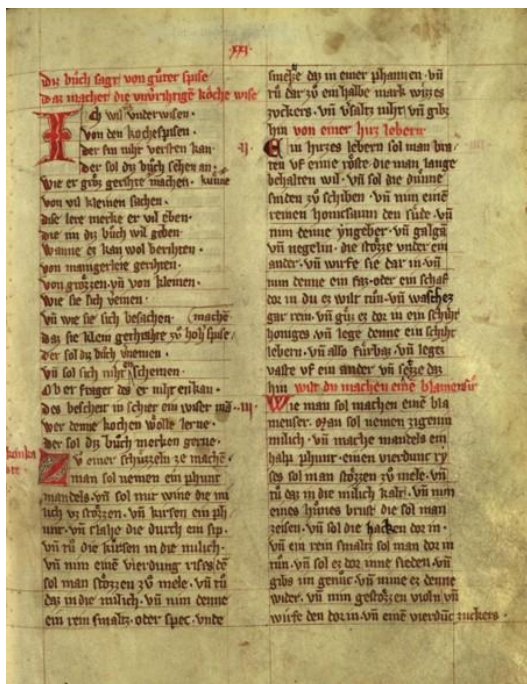 .xxi.
Diz bůch sagt von gůter spise
Daz machet die vnv'rihtigē köche wise
Ich wil vnderwisen.
von den kochespisen.
der sin niht versten kan.
der sol diz bůch sehen an.
wie er groz gerihte machen. kunne
von vil kleinen sachen.
dise lere merke er vil eben.
die im diz bůch wil geben.
wanne ez kan wol berihten.
von mangerleie gerihten.
von grozzen vñ von kleinen.
wie sie sich v'einen.
vñ wie sie sich besachen. mache
daz sie klein gerihte zů hoh' spise.
der sol diz bůch v'nemen.
vñ sol sich niht schemen.
Ob er fraget des er niht enkan.
des bescheit in schier ein wiser mā.
wer denne kochen wölle lerne.
der sol diz bůch merken gerne.
konkavelite
Zů einer schüzzeln ze machē
man sol nemen ein phunt
mandels. vñ sol mit wine die milich
vz stozzen. vñ kirsen ein phunt.
vñ slahe die durch ein sip.
vñ tů die kirsen in die milich.
vñ nim einē vierdung rises dē
sol man stozzen zů mele. vñ tů
daz in die milich. vñ nim denne
ein rein smaltz. oder spec. vnde
smeltze daz in einer phannen. vñ
tů dar zů ein halbe mark wizzes
zuckers. vñ v'saltz niht. vñ gibz
hin von einer hirz lebern
ij. Ein hirzes lebern sol man braten
vf eime röste die man lange
behalten wil. vñ sol die dünne
sniden zů schiben. vñ nim eine
reinen honicsaum den süde. vñ
nim denne yngeber. vñ galgā
vñ negelin. die stozze vnder ein
ander. vñ wirfe sie dar in. vñ
nim denne ein faz. oder ein schaf
dor in du ez wilt tůn. vñ waschez
gar rein. vñ güz ez dor in ein schiht
honiges. vñ lege denne ein schiht
lebern. vñ also fürbaz. vñ legez
vaste vf ein ander. vñ setze daz
hin wilt du machen einē blamensir
iij. Wie man sol machen einē blamenser.
Man sol nemen zigenin
milich. vñ mache mandels ein
halp phunt. einen vierdunc ryses
sol man stozzen zů mele. vñ
tů daz in die milich kalt. vñ nim
eines hůnes brust die sol man
zeisen. vñ sol die hacken dor in.
vñ ein rein smaltz sol man dor in
tůn. vñ sol ez dor inne sieden. vñ
gibs im genůc. vñ nime ez denne
wider. vñ nim gestozzen violn vñ
wirfe den dor in. vñ einē vierdūc zuckers.